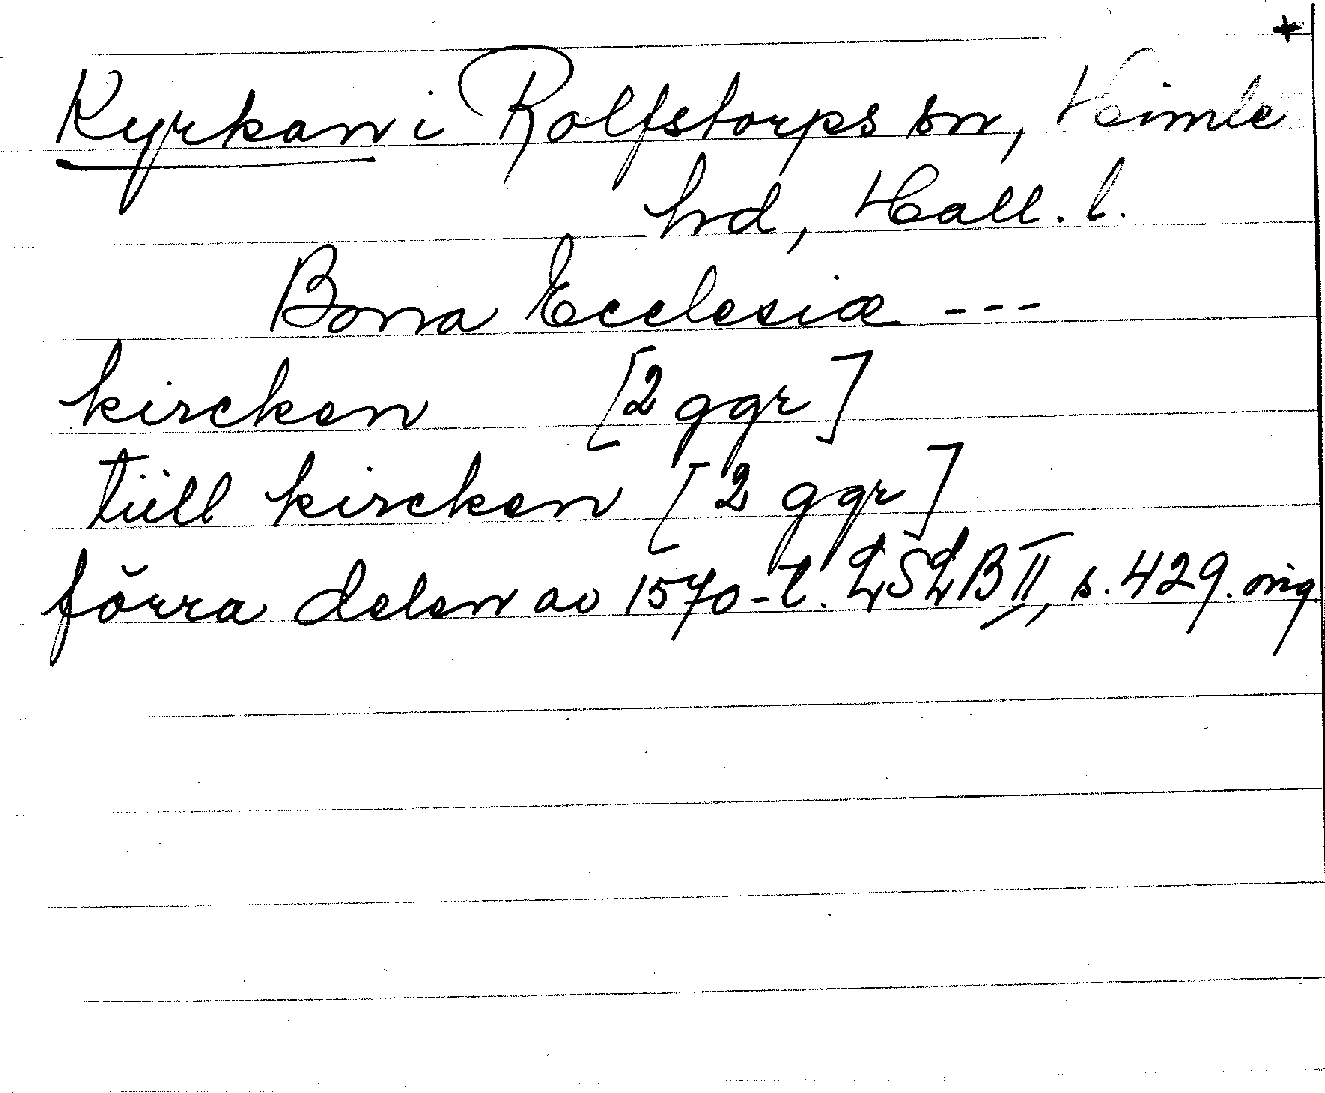 +
Kyrkan i Rolfstorps sn, Himle
hd, Hall. l.
Bona Ecclesiæ ---
kircken [2 ggr]
tiill kircken [2 ggr]
förra delen av 1570-t. LSLB II, s. 429. orig